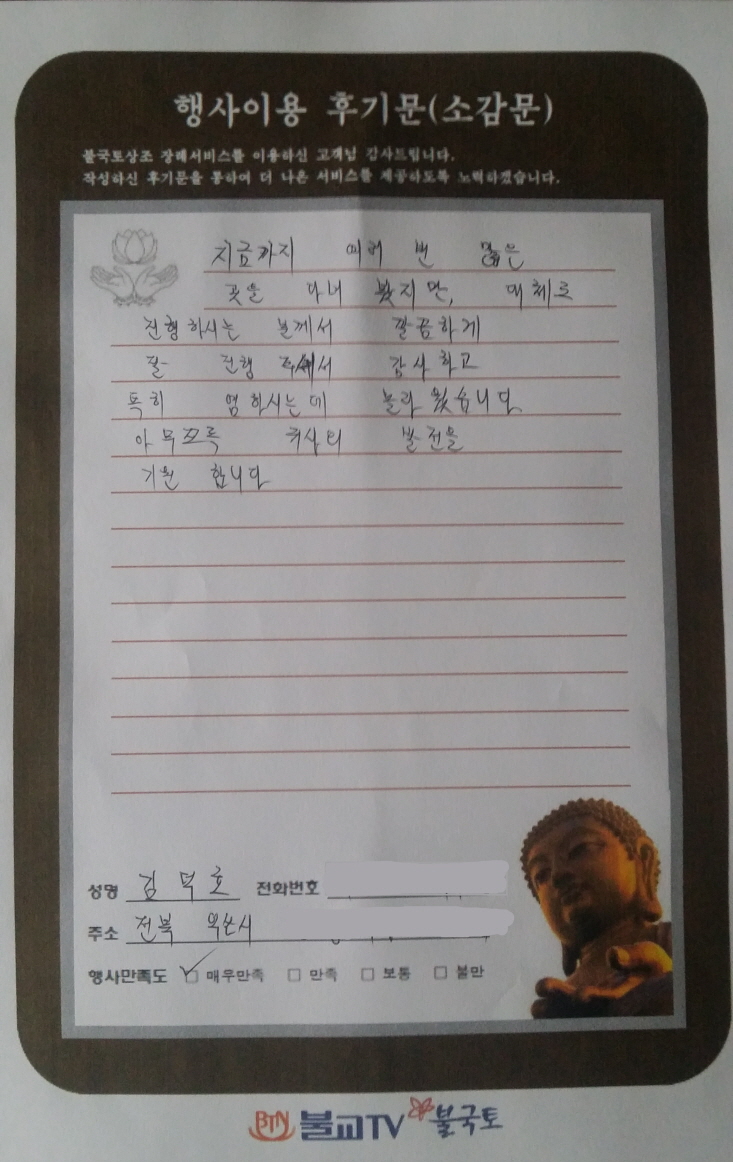 행사이용 후기문(소감문)
불국토상조 장례서비스를 이용하신 고객님 감사드립니다.
작성하신 후기문을 통하여 더 나은 서비스를 제공하도록 노력하겠습니다.
지금까지 여러 번 많은
곳을 다녀 봤지만, 대체로
진행하시는 분께서 깔끔하게
잘 진행 주셔서 감사하고
특히 염하시는데 놀라웠습니다
아무쪼록 귀사의 발전을
기원 합니다
성명 김덕호 전화번호
주소 전북 익산시
행사만족도 ☑ 매우만족 □ 만족 □ 보통 □ 불만
BTN 불교TV 불국토